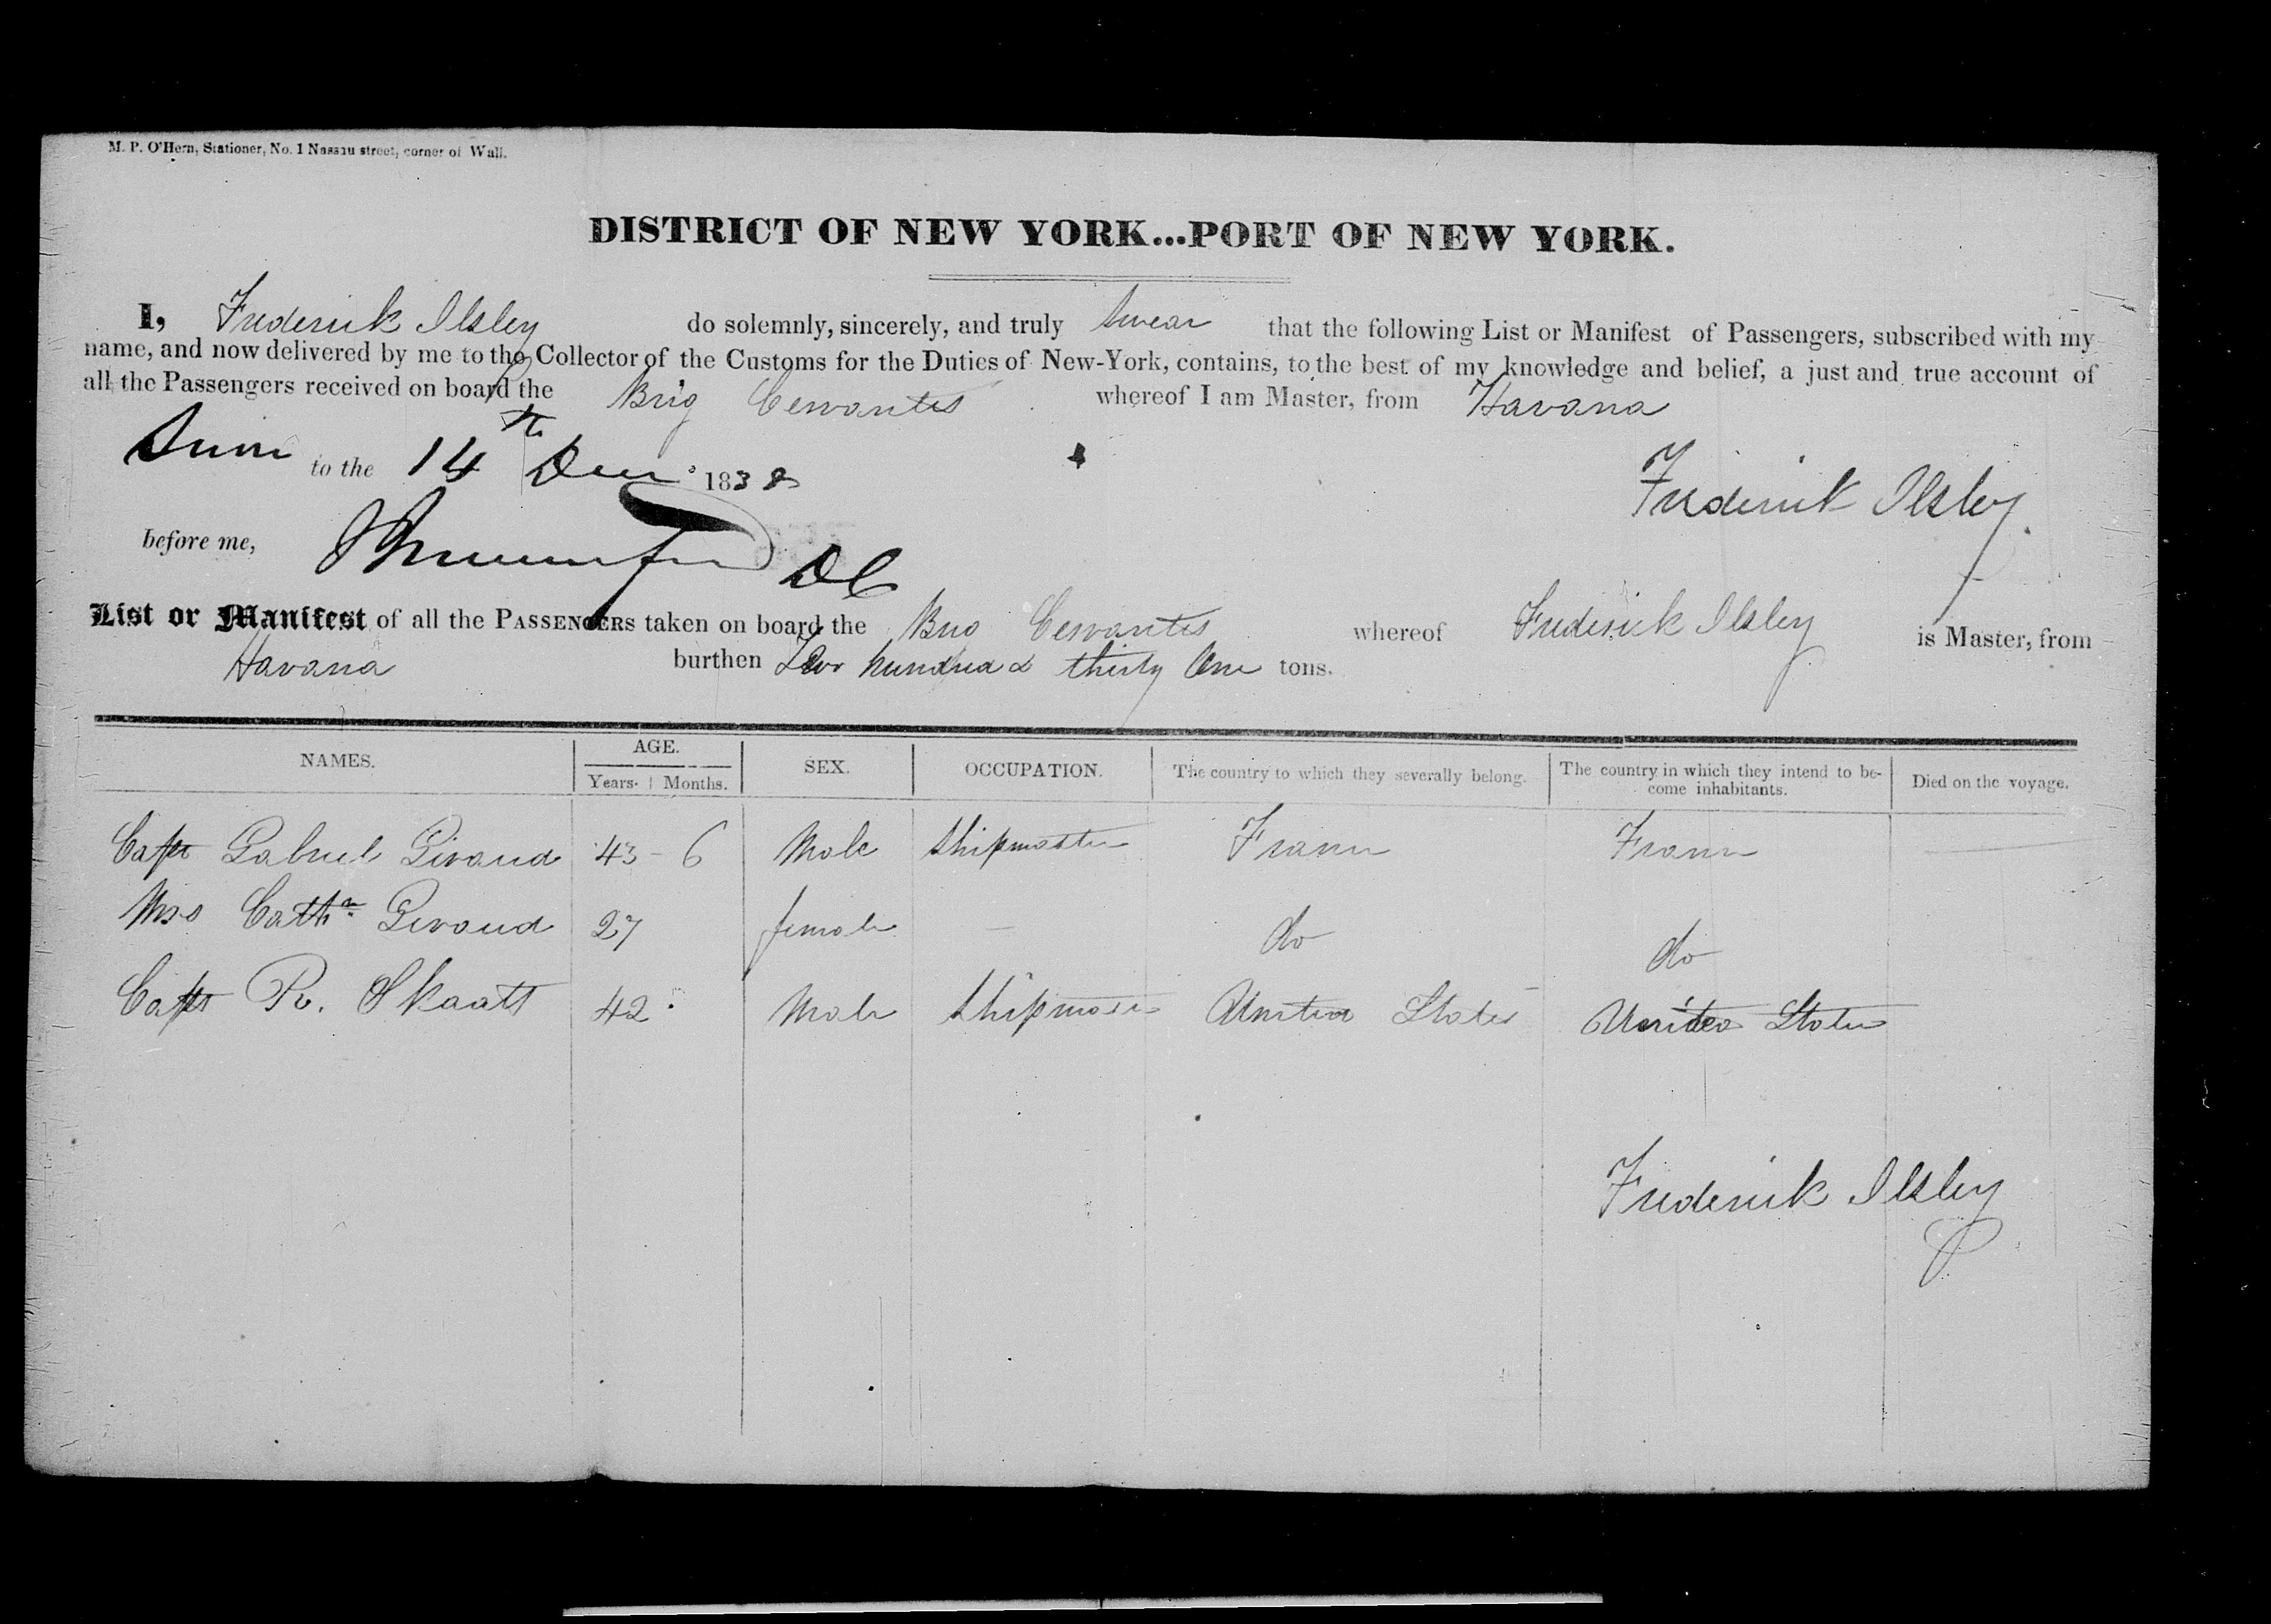 M. P. O'Hern, Stationer, No. 1 Nassau street, corner of Wall.
DISTRICT OF NEW YORK...PORT OF NEW YORK.
I, Frederick Ilsley do solemnly, sincerely, and truly Swear that the following List or Manifest of Passengers, subscribed with my
name, and now delivered by me to the Collector of the Customs for the Duties of New-York, contains, to the best of my knowledge and belief, a just and true account of
all the Passengers received on board the Brig Cervantes whereof I am Master, from Havana
to the 14th Decr 1838
Frederick Ilsley
before me, DC
List or Manifest of all the PASSENGERS taken on board the Brig Cervantes whereof Frederick Ilsley is Master, from
Havana burthen Two hundred & thirty One tons.
NAMES. AGE. Years. Months. SEX. OCCUPATION. The country to which they severally belong. The country in which they intend to become inhabitants. Died on the voyage.
Capt Gabriel Giraud 43 - 6 Male Shipmaster France France
Mrs Catha Giraud 27 female — do do
Capt R. Skaatt 42 Male Shipmaster United States United States
Frederick Ilsley